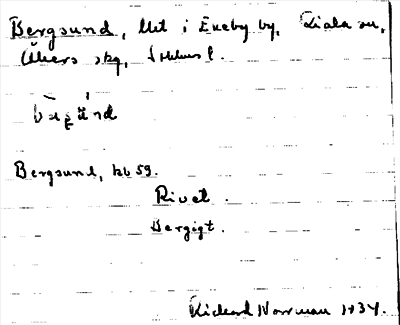 Bergsund, lht i Eneby by, Lista sn,
Åkers skg, Sthlms l.
Bergsund, kb 59.
Rivet.
Bergigt.
Rickard Norrman 1934.